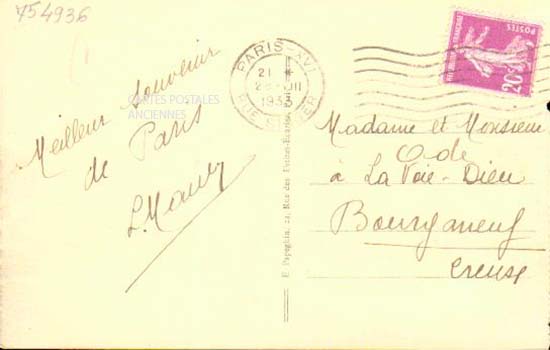 754936
Meilleur souvenir
de Paris
CARTES POSTALES
ANCIENNES
PARIS-XVI
21 *
1933
E. Papeghin, 22, Rue des Petites-Écuries, Paris
POSTES
20c
Madame et Monsieur
Ode
à La Voie-Dieu
Bourganeuf
Creuse